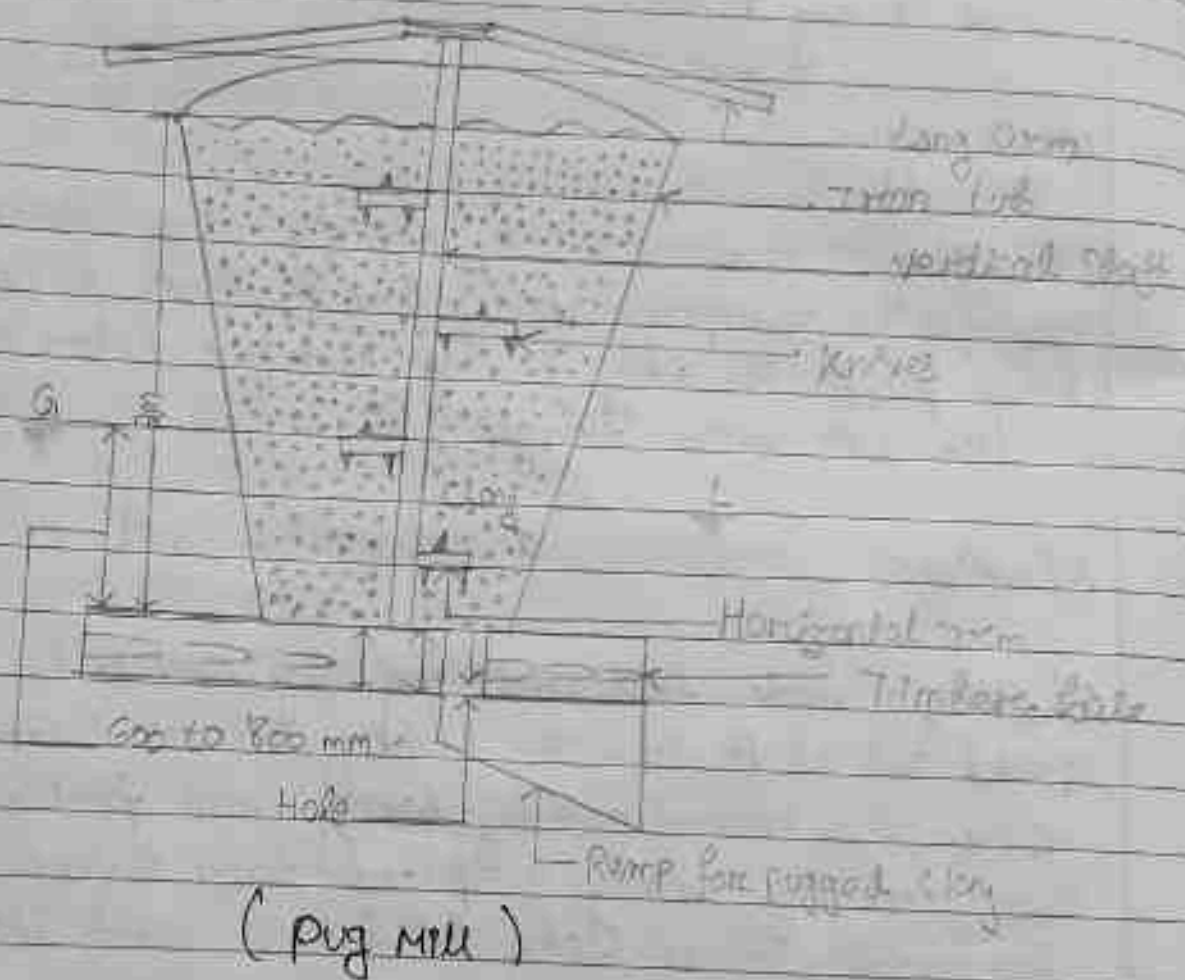 Long arm
Iron tub
Vertical shaft
Knives
G
L
Clay
Horizontal arm
Timber
600 to 800 mm
Hole
Ramp for pugged clay
(Pug Mill)